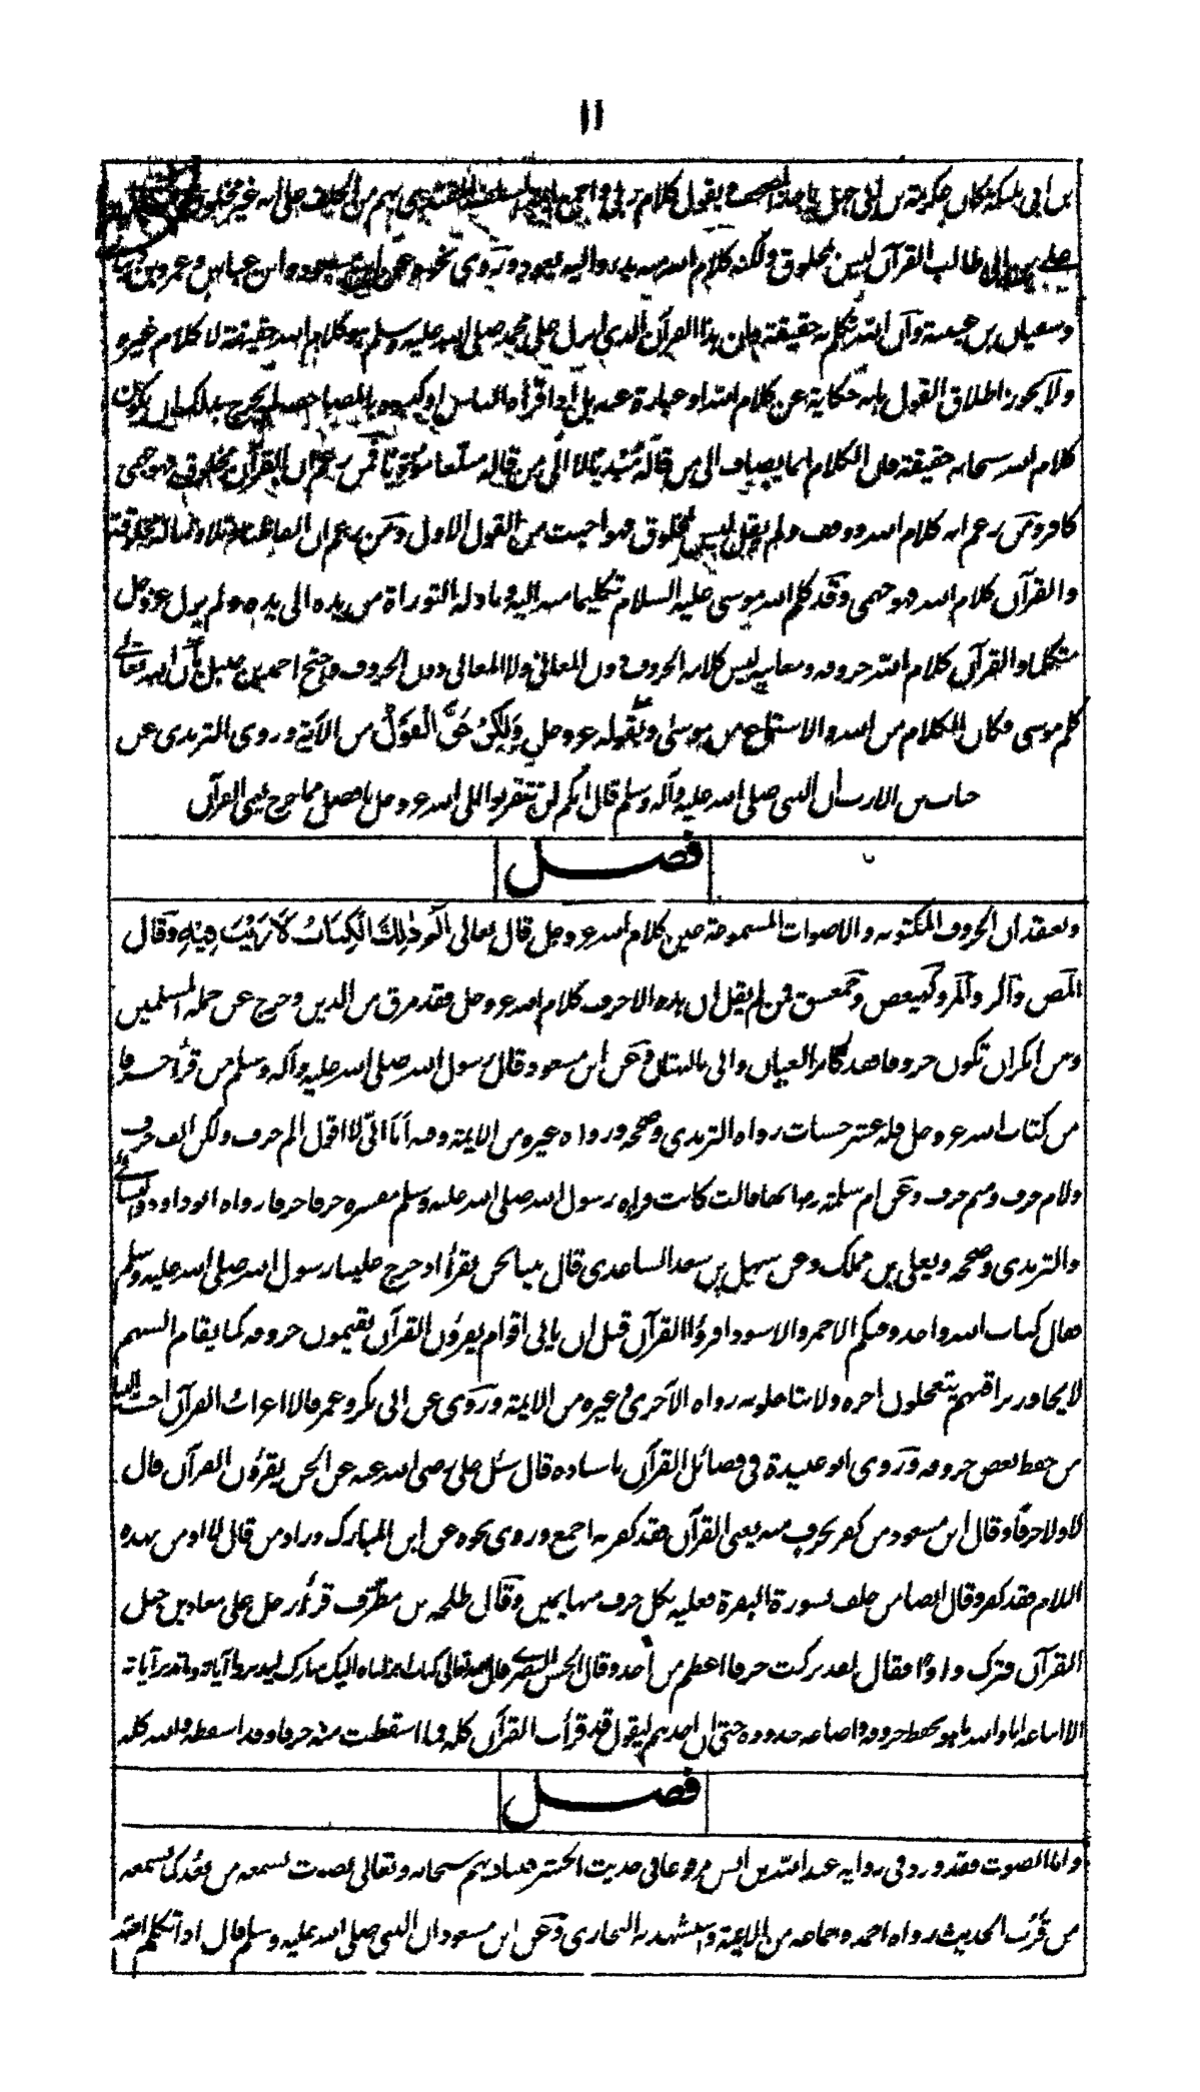 ١١
بن ابى مليكة كان عكرمة بن ابى جهل يأخذ المصحف ويقول كلام ربى واجمع السلف المقتدى بهم من الخلف على انه غير مخلوق
على بن ابى طالب القرآن ليس بمخلوق ولكنه كلام الله منه بدء واليه يعود وروى نحوه عن ابن مسعود وابن عباس وعمرو بن دينار
وسفيان بن عيينة وان الله تكلم به حقيقة وان هذا القرآن الذى انزل على محمد صلى الله عليه وسلم هو كلام الله حقيقة لا كلام غيره
ولا يجوز اطلاق القول بانه حكاية عن كلام الله او عبارة عنه بل اذا قرأه الناس او كتبوه بالمصاحف لم يخرج بذلك ان يكون
كلام الله سبحانه حقيقة فان الكلام انما يضاف الى من قاله مبتديا لا الى من قاله مبلغا مؤديا فمن زعم ان القرآن مخلوق فهو جهمى
كافر ومن زعم انه كلام الله ووقف ولم يقل ليس بمخلوق فهو اخبث من القول الاول ومن زعم ان الفاظنا وتلاوتنا له مخلوقة
والقرآن كلام الله فهو جهمى وقد كلم الله موسى عليه السلام تكليما منه اليه وناوله التوراة من يده الى يده ولم يزل عز وجل
متكلما والقرآن كلام الله حروفه ومعانيه ليس كلامه الحروف دون المعانى ولا المعانى دون الحروف واحتج احمد بن حنبل بان الله تعالى
كلم موسى فكان الكلام من الله والاستماع من موسى وبقوله عز وجل وَلٰكِنْ حَقَّ الْقَوْلُ من الآية وروى الترمذى عن
خباب بن الارت ان النبى صلى الله عليه وآله وسلم قال انكم لن تتقربوا الى الله عز وجل بافضل مما خرج منه يعنى القرآن
فصل
ونعتقد ان الحروف المكتوبه والاصوات المسموعة عين كلام الله عز وجل قال تعالى الٓمّ ذٰلِكَ الْكِتَابُ لَا رَيْبَ فِيْهِ وقال
المص وآلر وآلمر وكهيعص وحمعسق فمن لم يقل ان هذه الاحرف كلام الله عز وجل فقد مرق من الدين وخرج عن جملة المسلمين
ومن انكر ان تكون حروفا فقد كابر العيان واتى بالبهتان وعن ابن مسعود قال رسول الله صلى الله عليه وآله وسلم من قرأ حرفا
من كتاب الله عز وجل فله عشر حسنات رواه الترمذى وصححه ورواه غيره من الايمة وفيه اما انى لا اقول الم حرف ولكن الف حرف
ولام حرف وميم حرف وعن ام سلمة قالت كانت قراءة رسول الله صلى الله عليه وسلم مفسرة حرفا حرفا رواه ابو داود والنسائى
والترمذى وصححه ويعلى بن مملك وعن سهيل بن سعد الساعدى قال بينا نحن نقرأ اذ خرج علينا رسول الله صلى الله عليه وسلم
فقال كتاب الله واحد وفيكم الاحمر والاسود اقرؤا القرآن قبل ان ياتى اقوام يقرؤن القرآن يقيمون حروفه كما يقام السهم
لا يجاوز تراقيهم يتعجلون اجره ولا يتاجلونه رواه الآجرى وغيره من الايمة وروى عن ابى بكر وعمر قالا اعراب القرآن احب الينا
من حفظ بعض حروفه وروى ابو عبيدة فى فضائل القرآن باسناده قال سئل على رضى الله عنه عن الجنب يقرؤن القرآن قال
لا ولا حرفا وقال ابن مسعود من كفر بحرف منه يعنى القرآن فقد كفر به اجمع وروى نحوه عن ابن المبارك وزاد من قال لا اومن بهذه
اللام فقد كفر وقال ايضا من حلف بسورة البقرة فعليه بكل حرف منها يمين وقال طلحه بن مطرف قرأ رجل على معاذ بن جبل
القرآن فترك واوا فقال لقد تركت حرفا اعظم من احد وقال الحسن البصرى قال الله تعالى كتاب انزلناه اليك مبارك ليدبروا آياته وما تدبر آياته
الا اتباعه اما والله ما هو بحفظ حروفه واضاعة حدوده حتى ان احدهم ليقول قد قرأت القرآن كله فما اسقطت منه حرفا وقد اسقطه والله كله
فصل
واما الصوت فقد ورد فى رواية عبد الله بن انيس مرفوعا فى حديث الحشر فيناديهم سبحانه وتعالى بصوت يسمعه من بعد كما يسمعه
من قرب الحديث رواه احمد وجماعة من الايمة واستشهد به البخارى وعن ابن مسعود ان النبى صلى الله عليه وسلم قال اذا تكلم الله